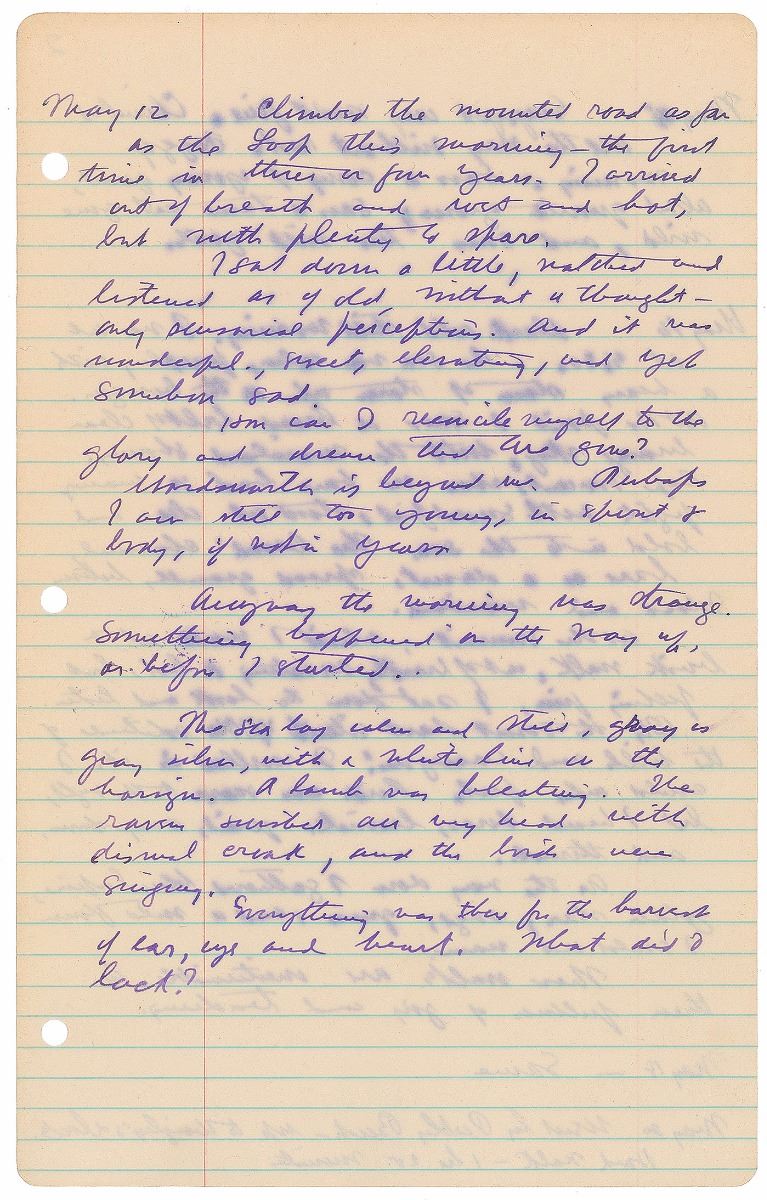 May 12 Climbed the mounted road as far
as the Loop this morning – the first
time in three or four years. I arrived
out of breath and wet and hot,
but with plenty to spare.
I sat down a little, watched and
listened as of old, without a thought –
only sensorial perceptions. And it was
wonderful, sweet, elevating, and yet
somehow sad.
How can I reconcile myself to the
glory and dream that are gone?
Wordsworth is beyond me. Perhaps
I am still too young, in spirit &
body, if not in years
Anyway the morning was strange.
Something happened on the way up,
or before I started..
The sea lay calm and still, gray as
gray silver, with a white line on the
horizon. A lamb was bleating. The
raven over my head with
dismal croak, and the birds were
singing.
Everything was there for the harvest
of ear, eye and heart. What did I
lack?